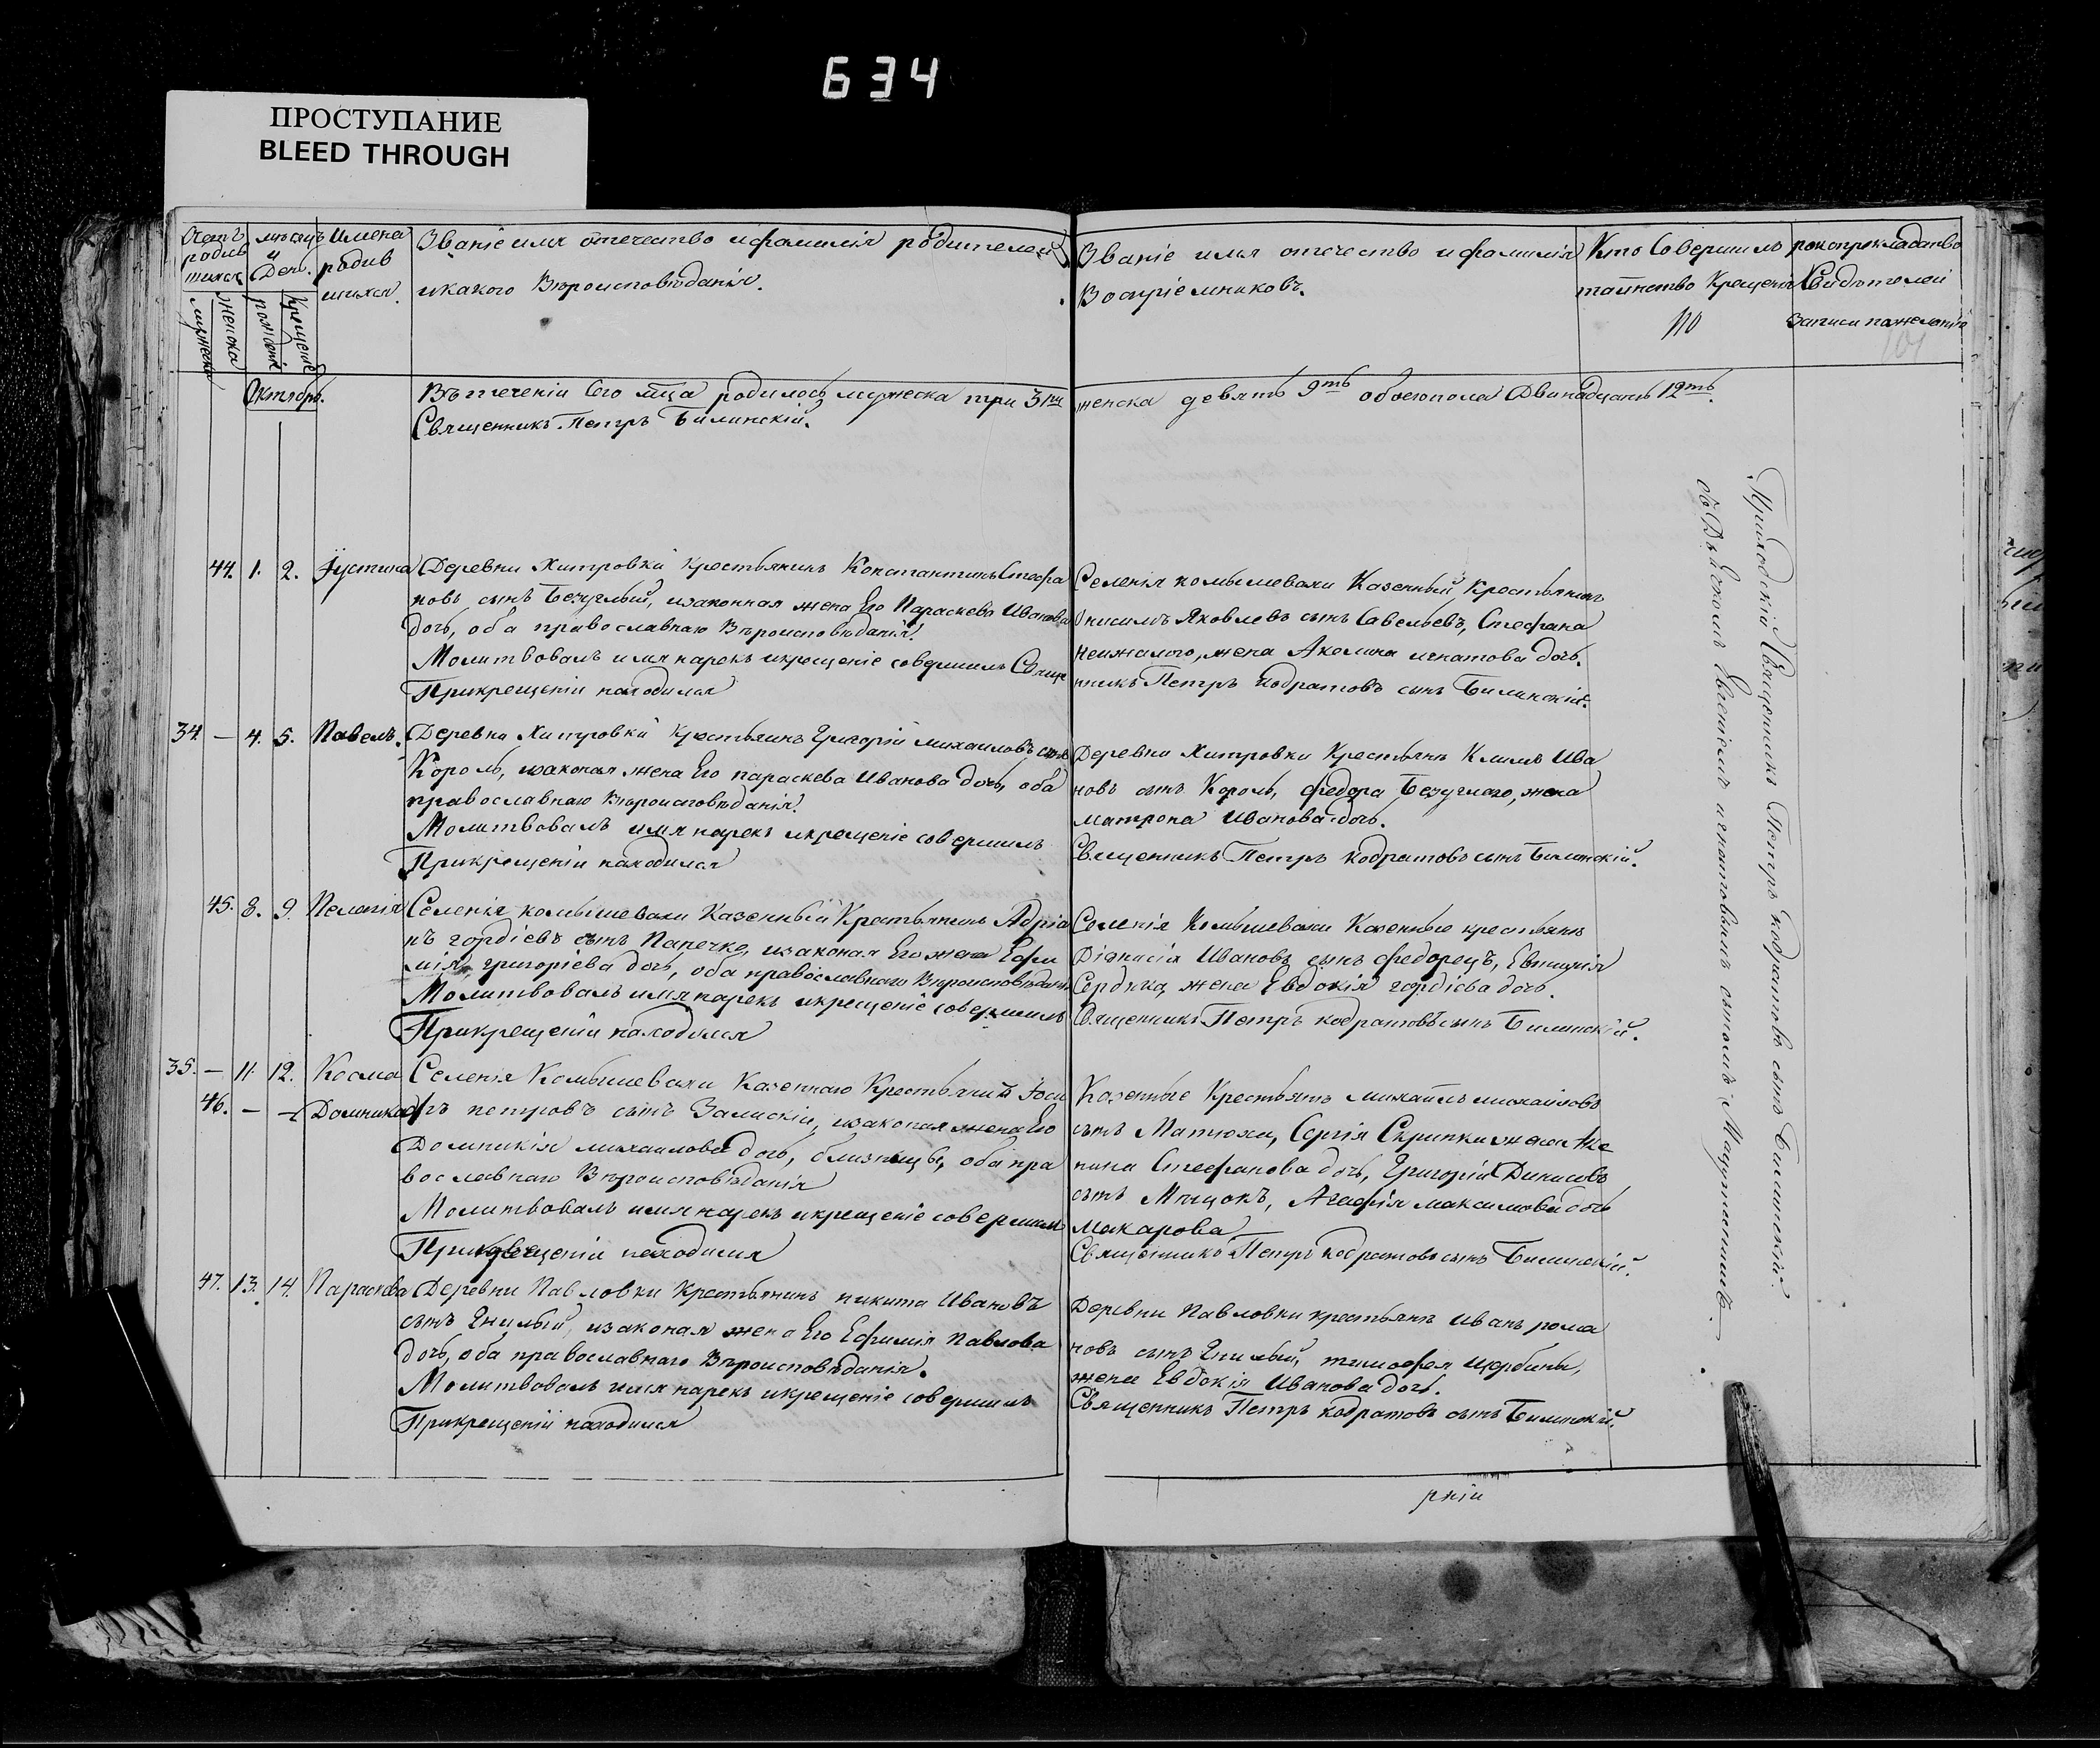 634
ПРОСТУПАНИЕ
BLEED THROUGH
Счетъ родив шихся
мужеска
женска
мѣсяцъ и День.
рожденіе
крещеніе
Имена родив шихся.
Званіе имя отечество ифамилія родителей
икакого Вѣроисповѣданія.
Званіе имя отечество ифамилія
Воспріемниковъ.
Кто Совершилъ
таинство Крещенія
По
рукоприкладство
Свидѣтелей
записи пожеланію
Октябрь.
Въ теченіи Сего мца родилось мужеска три 3 ри
женска девять 9ть обоегопола Двинадцать 12ть.
Священникъ Петръ Билинскій.
44. 1. 2. Іустина
Деревни Хитровки Крестьянинъ Константинъ Стефа
новъ сынъ Безуглый, изаконная жена Его Параскева Иванова
Дочь, оба православнаго Вѣроисповѣданія.
Молитвовалъ имя нарекъ икрещеніе совершилъ Свяще
Прикрещеніи находился
Селенія комышевахи Казенный Крестьянинъ
Онисимъ Яковлевъ сынъ Савельевъ, Стефана
Неижалого, жена Акелина игнатова дочь.
нникъ Петръ кодратовъ сынъ Билинскій.
34. — 4. 5. Павелъ.
Деревни Хитровки Крестьянинъ Григорій михаиловъ сынъ
Король, изаконая жена Его параскева Иванова дочь, оба
православнаго Вѣроисповѣданія.
Молитвовалъ имя нарекъ икрещеніе совершилъ
Прикрещеніи находился
Деревни Хитровки Крестьянъ Климъ Ива
новъ сынъ Король, федора Безуглаго, жена
матрона Иванова дочь.
Священникъ Петръ кодратовъ сынъ Билинскій.
45. 8. 9. Пелагія
Селенія комышевахи Казенный Крестьянинъ Адріа
нъ гордіевъ сынъ Папечко, изаконая Его жена Ефи
мія, григоріева дочь, оба православнаго Вѣроисповѣданія
Молитвовалъ имя нарекъ икрещеніе совершилъ
Прикрещеніи находился
Селенія Комышевахи Казенные крестьянъ
Діонисія Ивановъ сынъ федорецъ, Евтихія
Сердюка жена Евдокія гордіева дочь.
Священникъ Петръ кодратовъ сынъ Билинскій.
35. — 11. 12. Косма
46. — — Домникія
Селенія Комышевахи Казеннаго Крестьянинъ Іоси
фъ петровъ сынъ Залискій, изаконая жена Его
Домникія михаилова дочь, близнецы, оба пра
вославнаго Вѣроисповѣданія
Молитвовалъ имя нарекъ икрещеніе совершилъ
Прикрещеніи находился
Казенные Крестьянъ михаилъ михаиловъ
сынъ Матюха, Сергія Скрипки жена
Стефанова дочь, Григорій Динисовъ
сынъ Мищокъ, Агафія максимова дочь
макарова
Священникъ Петръ кодратовъ сынъ Билинскій.
47. 13. 14. Параскева
Деревни Павловки Крестьянинъ никита Ивановъ
сынъ Гнилый, изаконая жена Его Ефимія Павлова
дочь, оба православнаго Вѣроисповѣданія.
Молитвовалъ имя нарекъ икрещеніе совершилъ
Прикрещеніи находился
Деревни Павловки крестьянъ Иванъ рома
новъ сынъ Гнилый, тимофея щербины,
жена Евдокія Иванова дочь.
Священникъ Петръ кодратовъ сынъ Билинскій.
Приходскій Священникъ Петръ кодратовъ сынъ Билинскій.
рніи